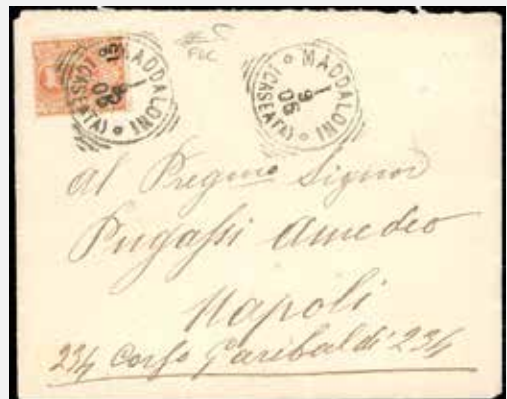 MADDALONI
(CASERTA)
15
MADDALONI
1
9
06
(CASERTA)
Al Pregmo Signor
Pugassi Amedeo
Napoli
234 Corso Garibaldi 234